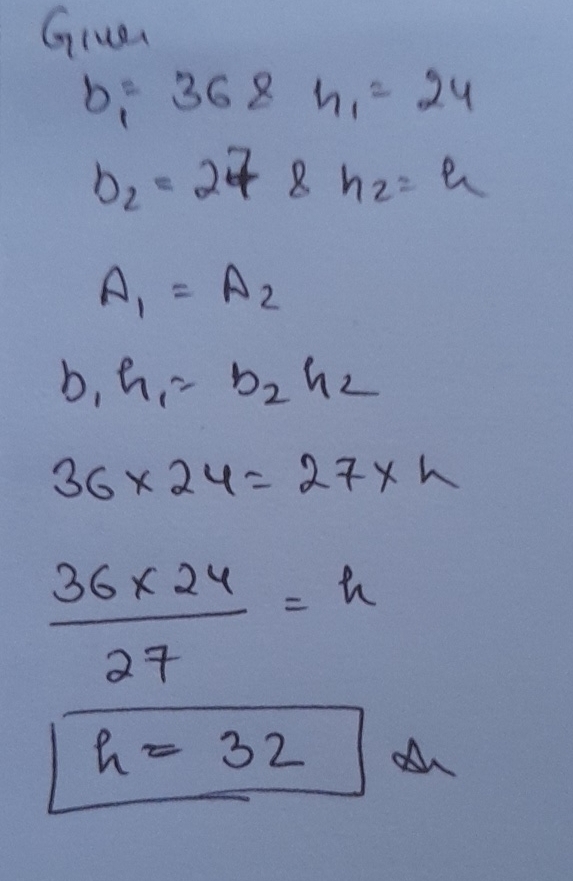 Given
b₁ = 36 & h₁ = 24
b₂ = 27 & h₂ = h
A₁ = A₂
b₁h₁ = b₂h₂
36 × 24 = 27 × h
36 × 24 / 27 = h
h = 32